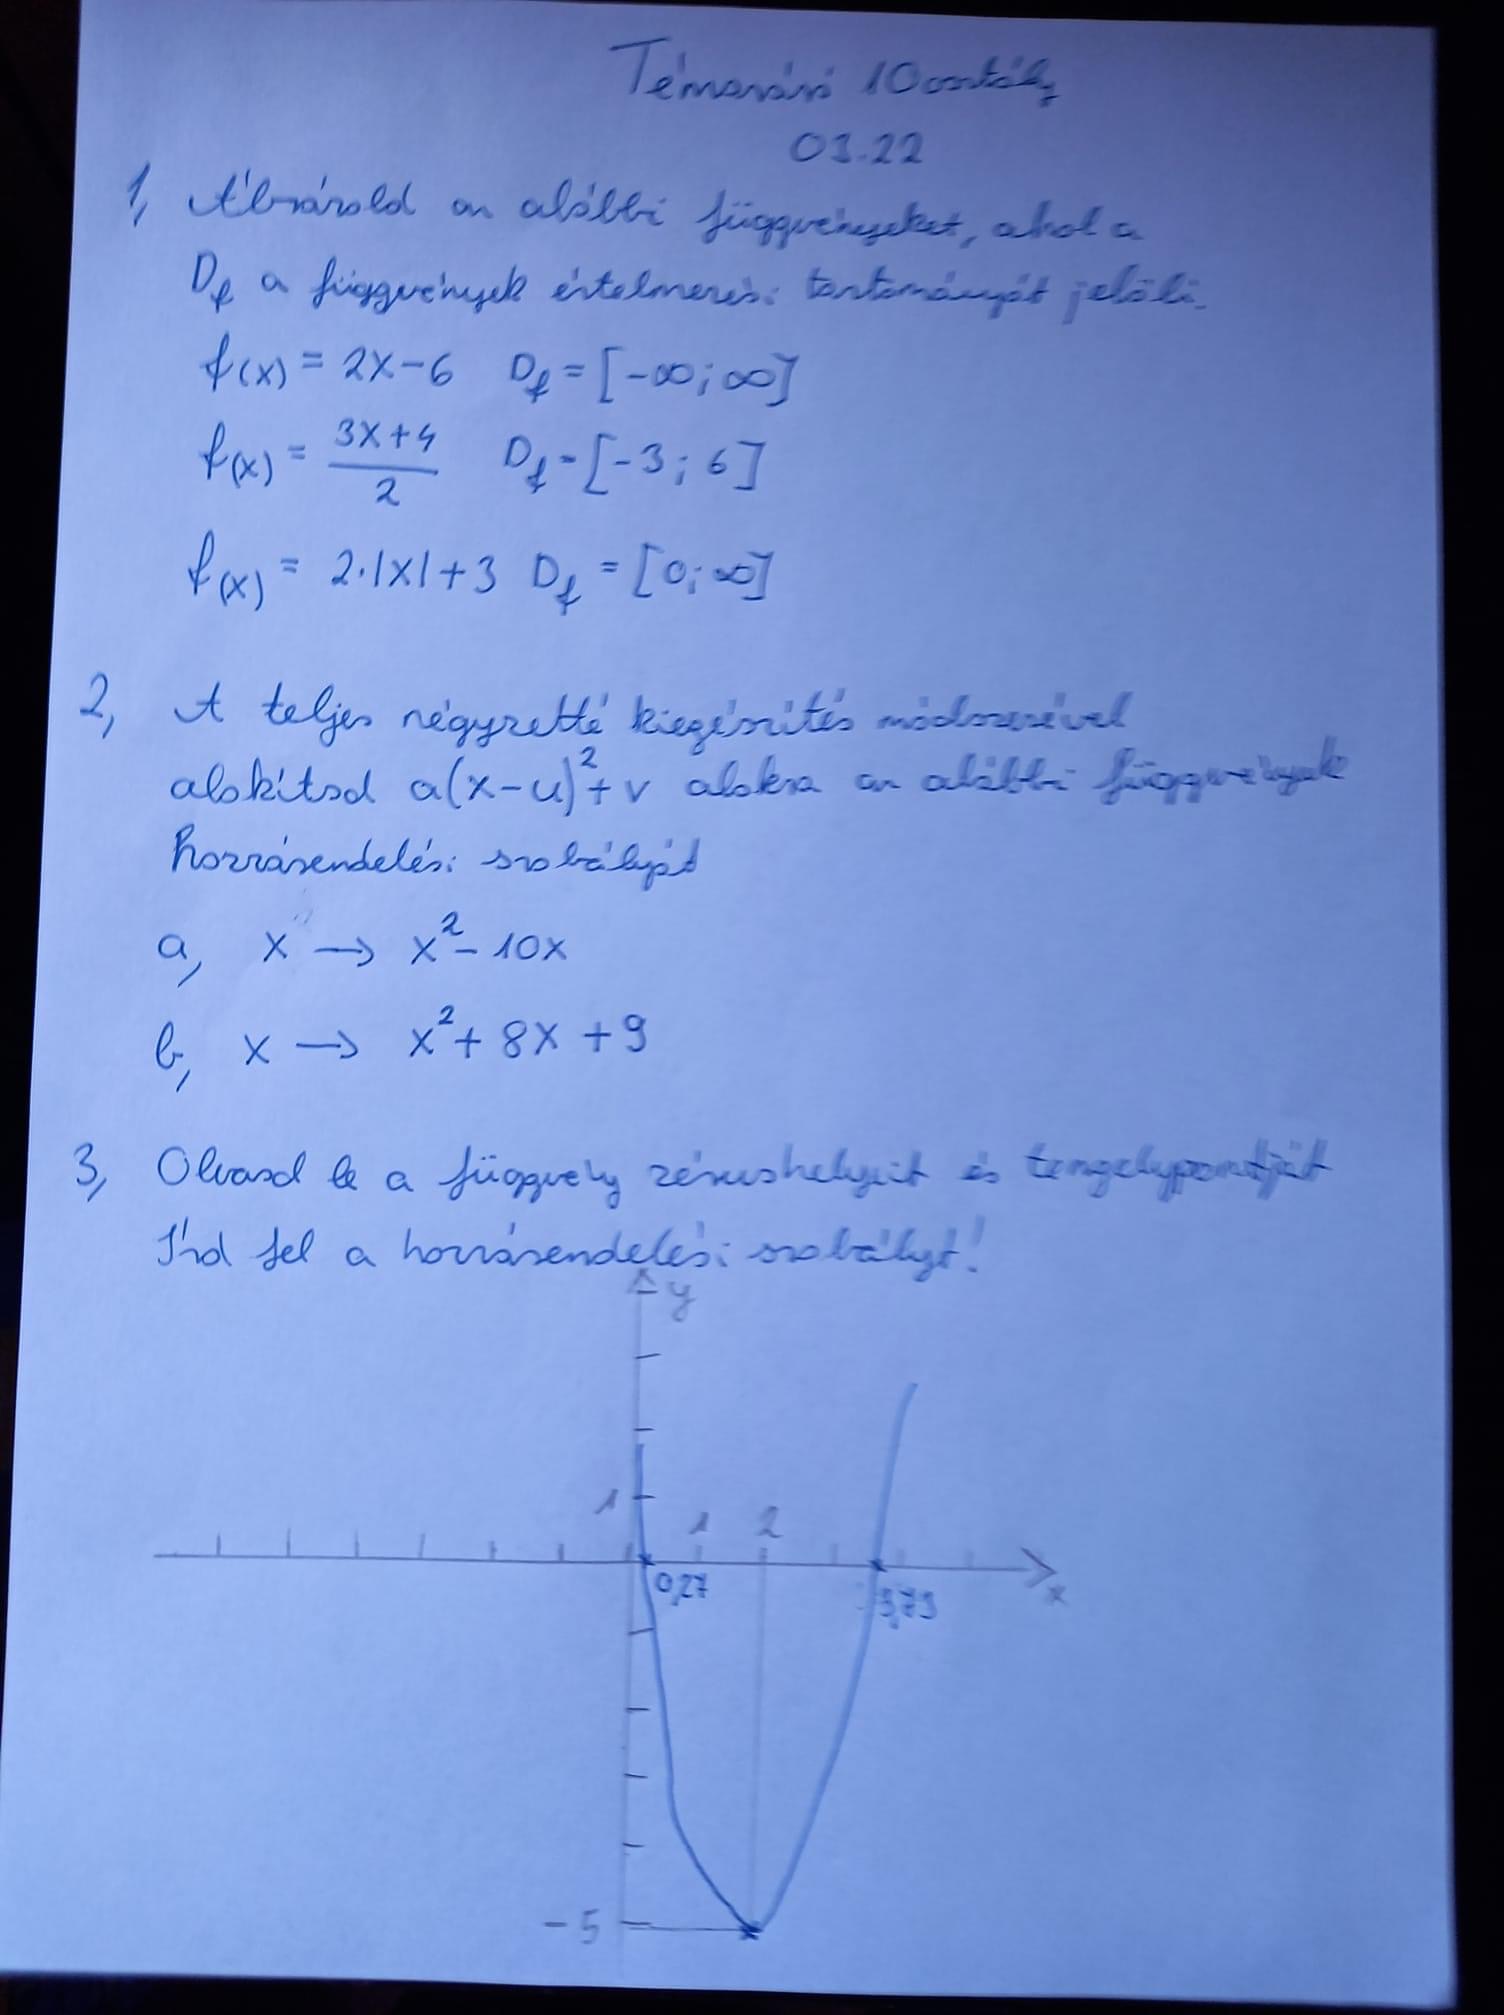 Témazáró 10 osztály
03.22
1, Ábrázold az alábbi függvényeket, ahol a
Df a függvények értelmezési tartományát jelöli.
f(x) = 2x-6 Df = [-∞; ∞]
f(x) = (3x+4)/2 Df = [-3; 6]
f(x) = 2·|x|+3 Df = [0; ∞]
2, A teljes négyzetté kiegészítés módszerével
alakítsd a(x-u)²+v alakra az alábbi függvények
hozzárendelési szabályát
a, x → x²-10x
b, x → x²+8x+9
3, Olvasd le a függvély zérushelyeit és tengelypontját
Írd fel a hozzárendelési szabályt!
y
1 1 2
0,27 3,73 x
-5